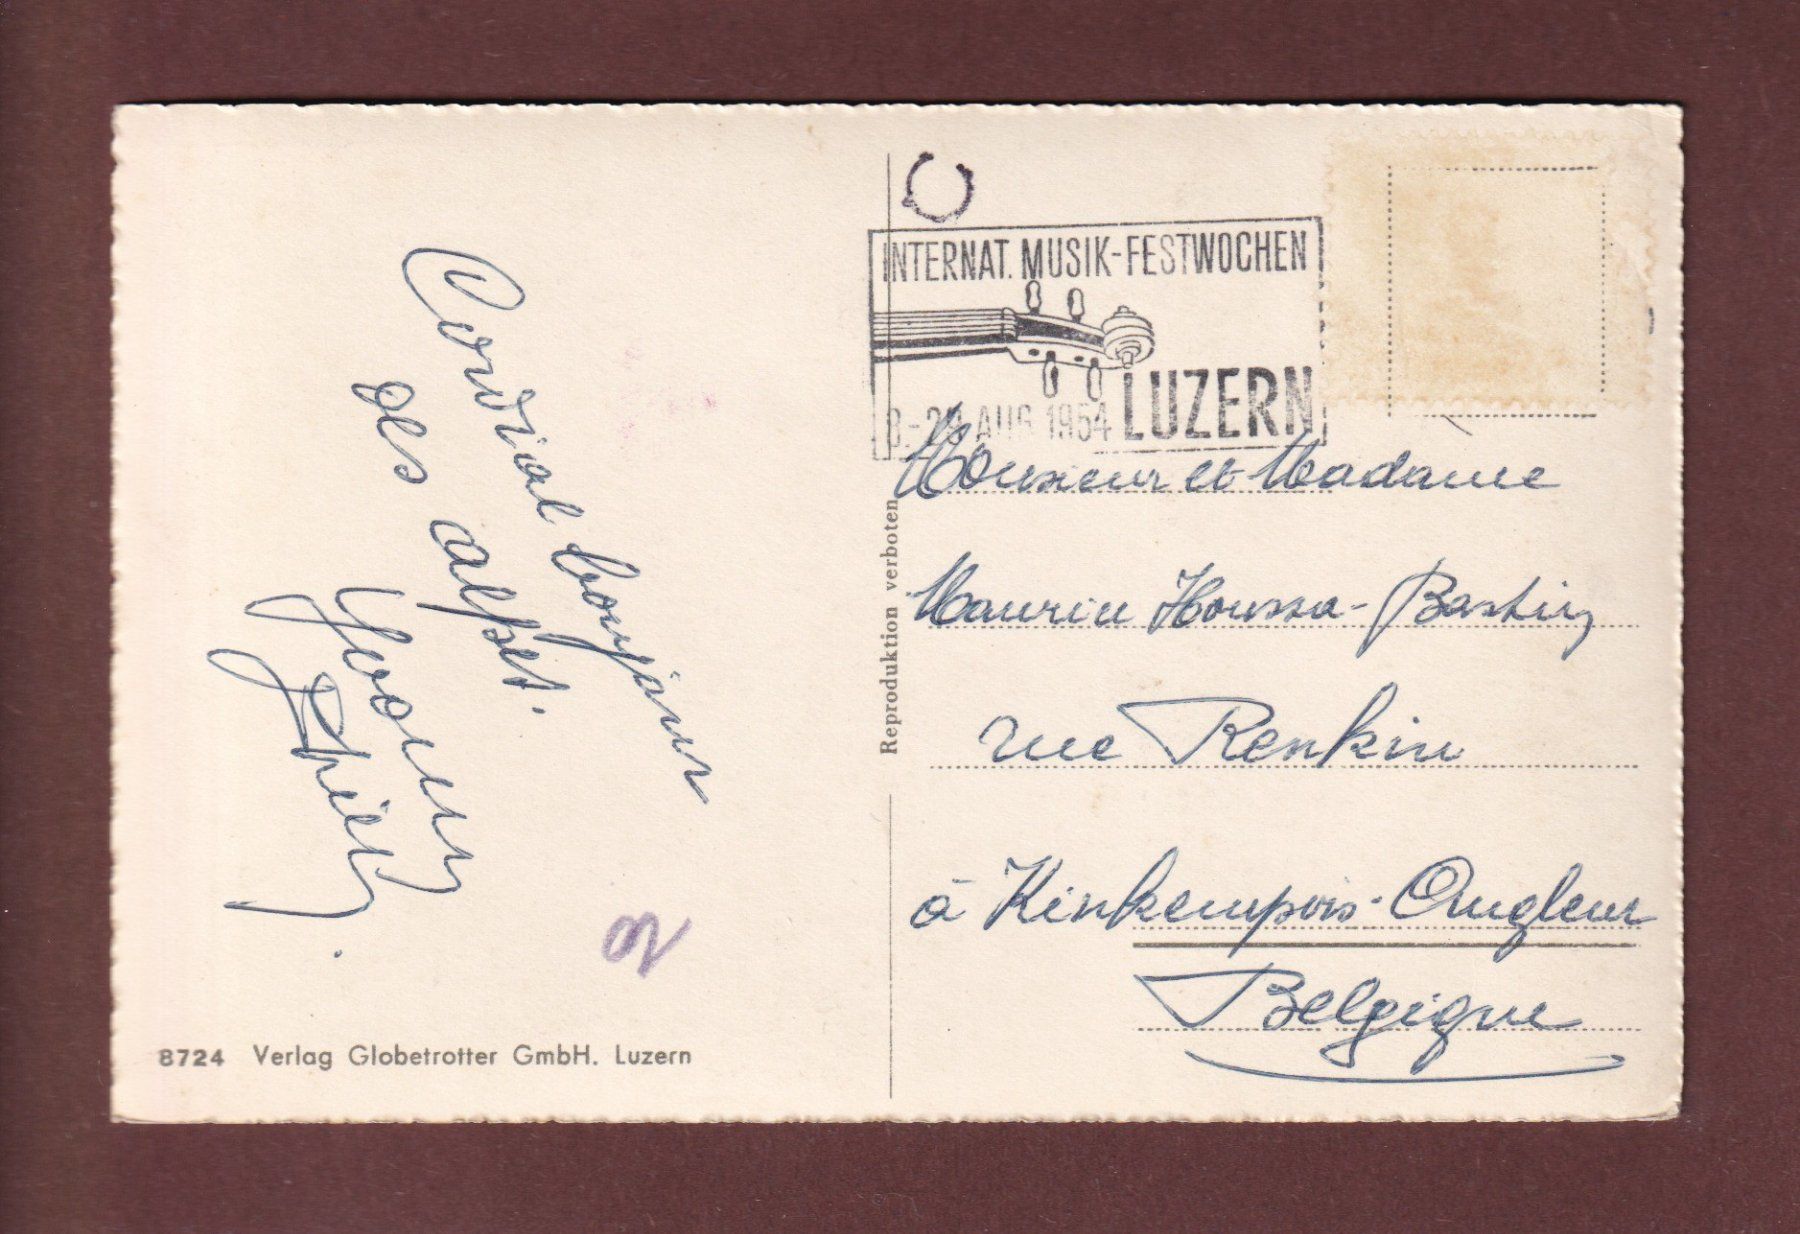 Cordial bonjour
des alpes.
Yvonne
INTERNAT. MUSIK-FESTWOCHEN
AUG 1954 LUZERN
Monsieur et Madame
Maurice Houssa-Bastin
rue Renkin
à Kinkempois-Angleur
Belgique
Reproduktion verboten
8724 Verlag Globetrotter GmbH. Luzern